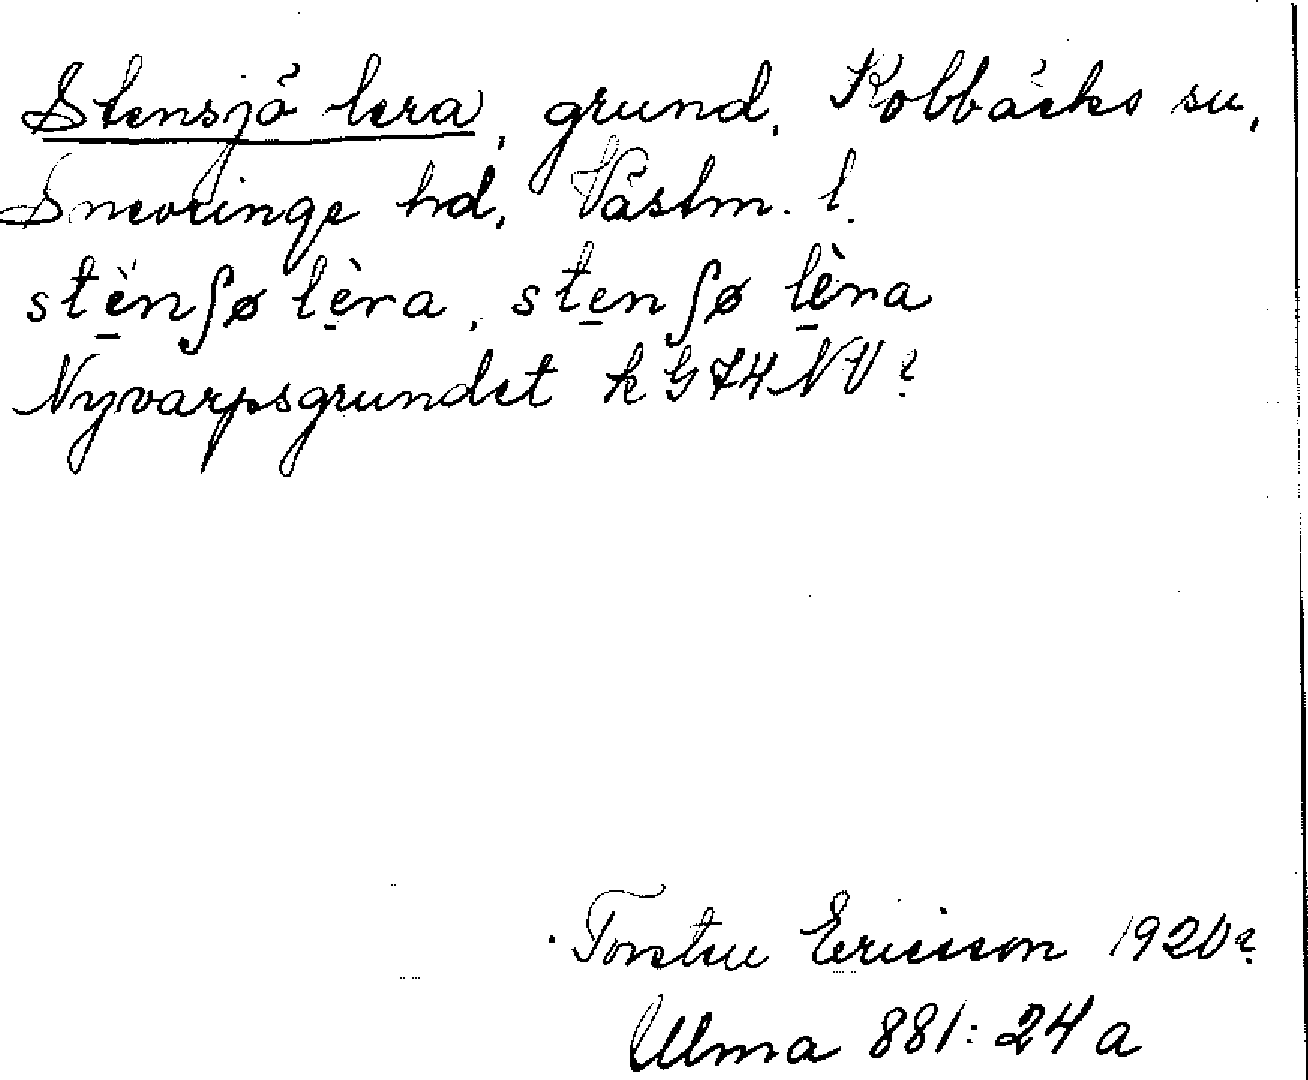 Stensjö lera, grund, Kolbäcks sn,
Snevringe hd, Västm. l.
stènʃø lèra, stenʃø lèra
Nyvarpsgrundet k G 74 NV?
Torsten Ericsson 1920?
Ulma 881:24 a